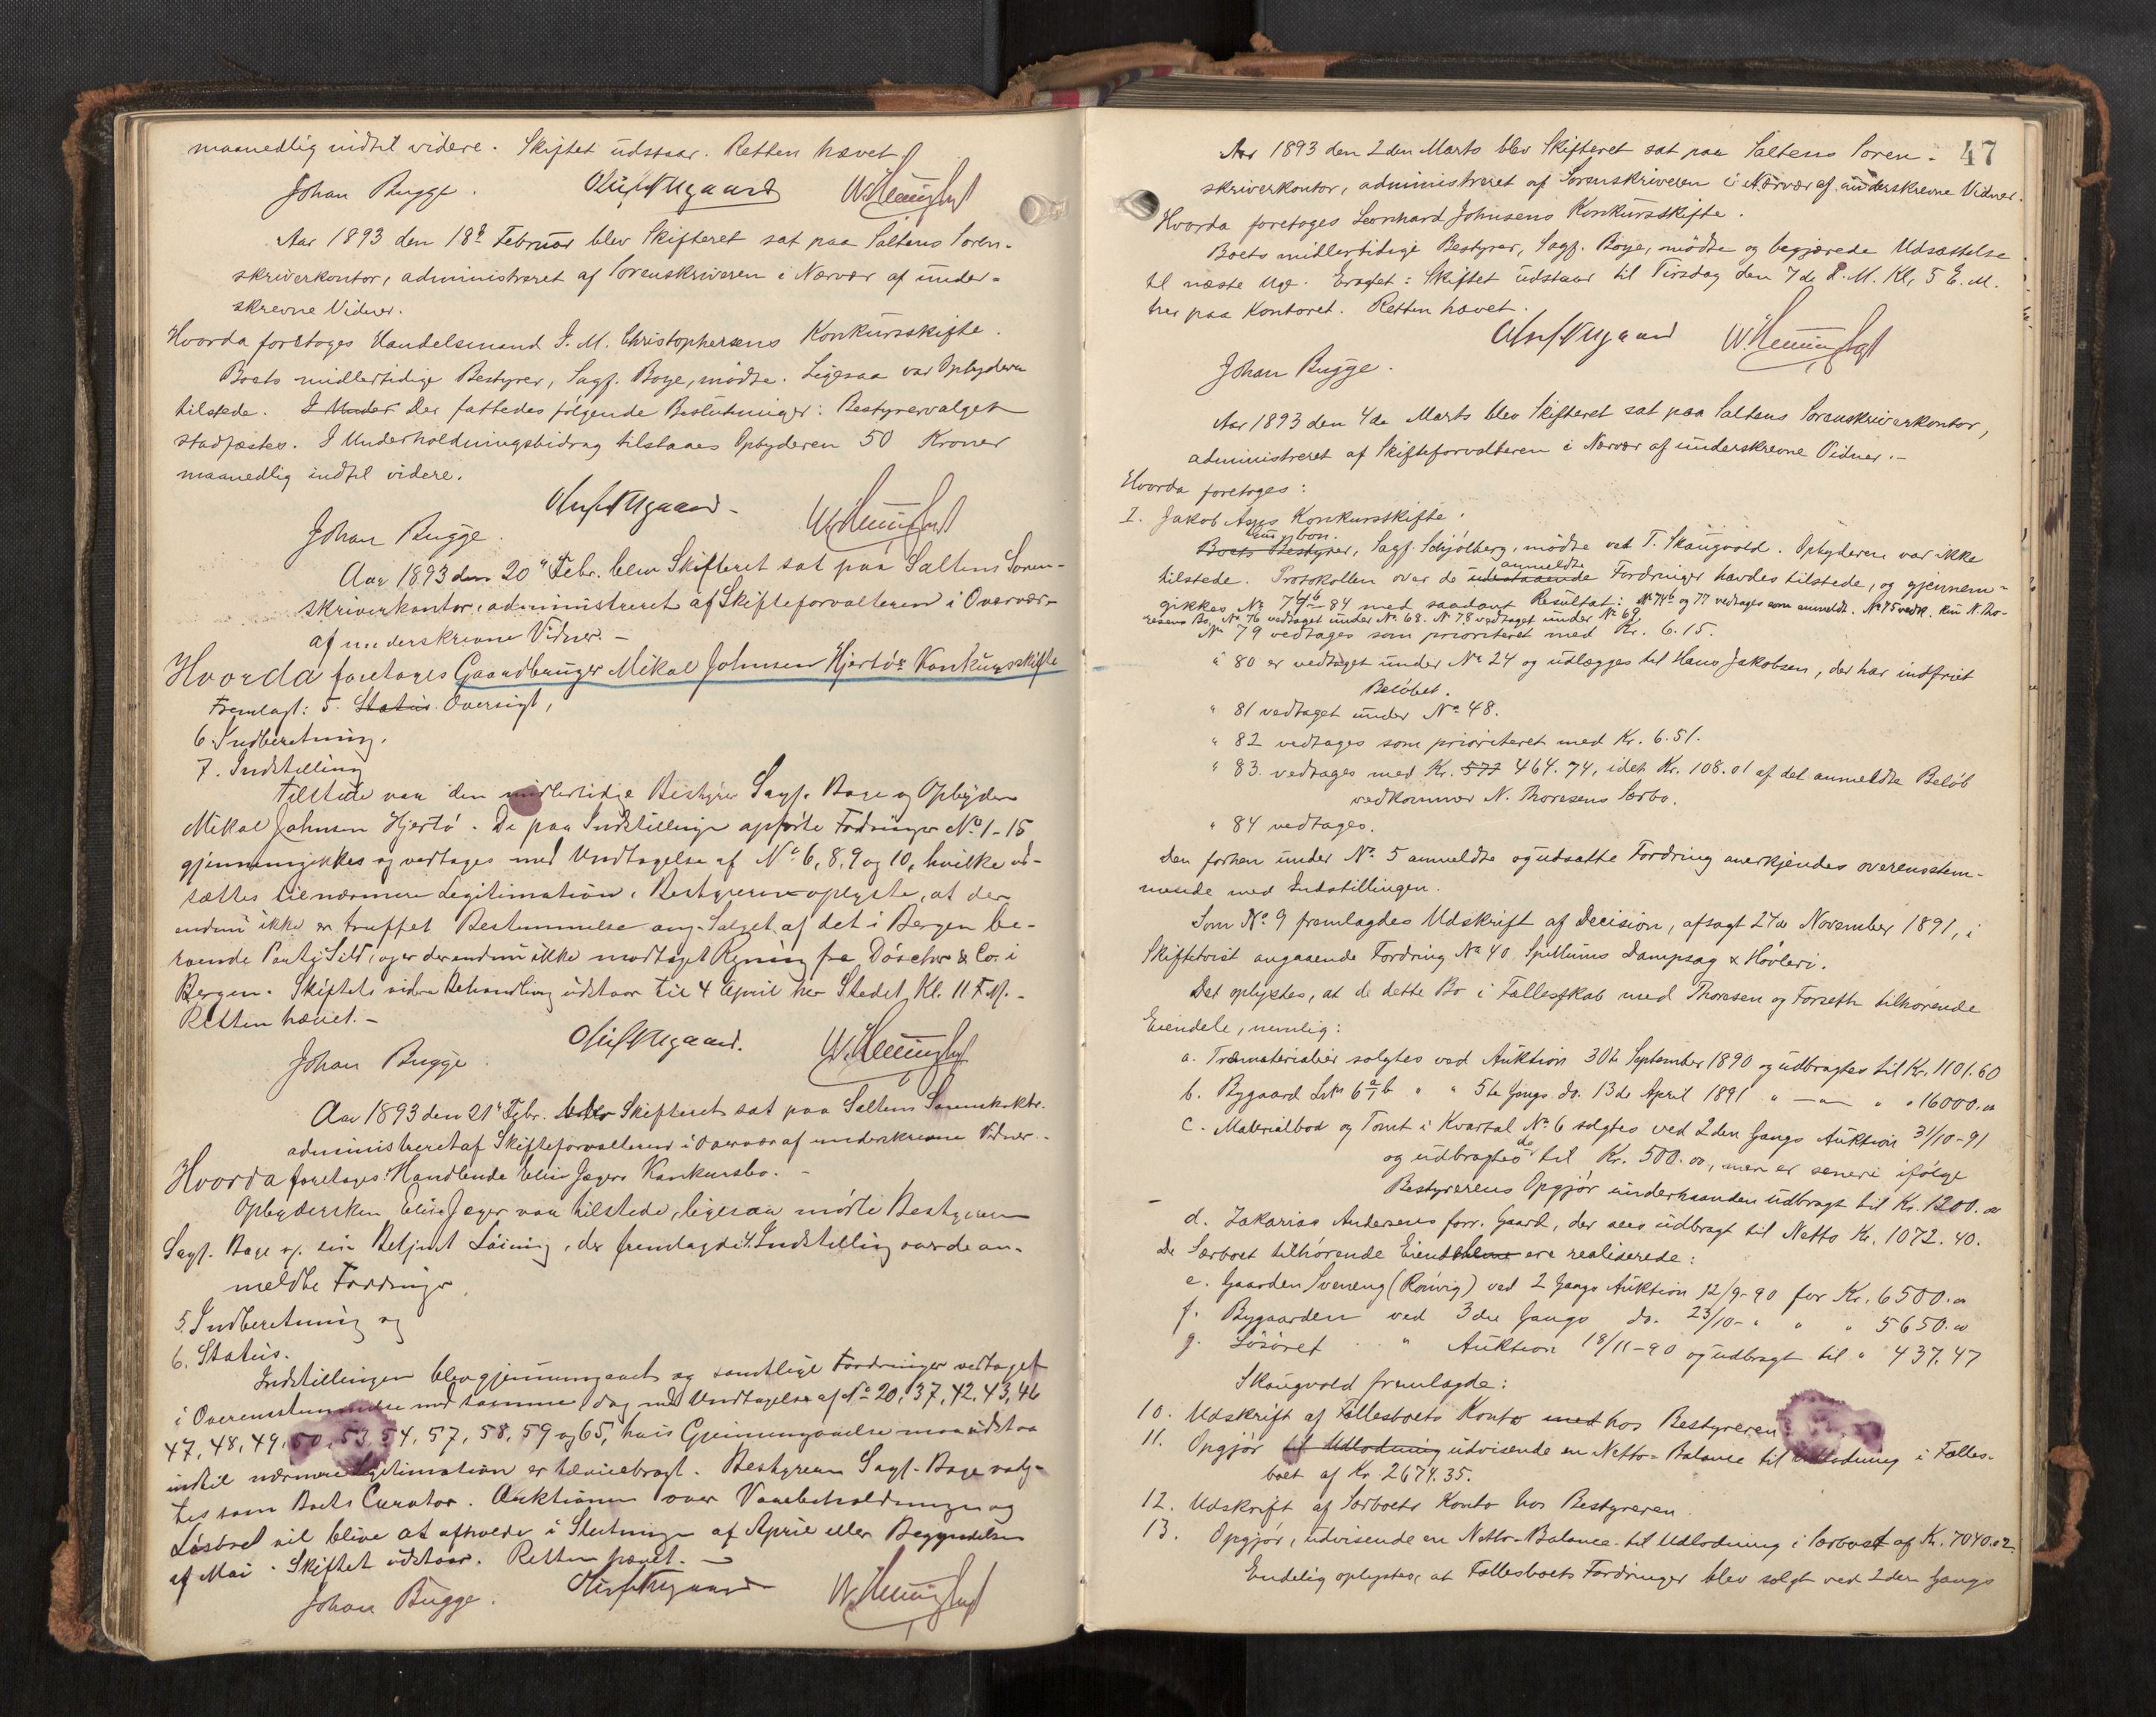 maanedlig indtil videre. Skiftet udstaar. Retten hævet
Johan Bugge.
Aar 1893 den 18de Februar blev Skifteret sat paa Saltens Soren-
skriverkontor, administreret af Sorenskriveren i Nærvær af under-
skrevne Vidner.
Hvorda foretoges Handelsmand J. M. Christophersens Konkursskifte.
Boets midlertidige Bestyrer, Sagf. Boye, mødte. Ligesaa var Opbyderen
tilstede. I Under Der fattedes følgende Beslutninger: Bestyrervalget
stadfæstes. I Underholdningsbidrag tilstaaes Opbyderen 50 Kroner
maanedlig indtil videre.
Johan Bugge.
Aar 1893 den 20" Febr. blev Skifteret sat paa Saltens Soren-
skriverkontor, administreret af Skifteforvalteren i Overvær
af underskrevne Vidner. –
Hvorda foretoges Gaardbruger Mikal Johnsen Hjertøs Konkursskifte
Fremlagt: 5. Status Oversigt,
6. Indberetning.
7. Indstilling
Tilstede var den midlertidige Bestyrer Sagf. Boye og Opbyder
Mikal Johnsen Hjertø. De paa Indstillingen opførte Fordringer No 1-15
gjennemgikkes og vedtoges med Undtagelse af No 6, 8, 9 og 10, hvilke ud-
sættes til nærmere Legitimation. Bestyreren oplyste, at der
endnu ikke er truffet Bestemmelse ang. Salget af det i Bergen be-
roende Parti Sild, og er der endnu ikke modtaget Regning fra Döscher & Co. i
Bergen. Skiftets videre Behandling udstaar til 4 April her Stedet Kl. 11 F.M. –
Retten hævet. –
Johan Bugge.
Aar 1893 den 21" Febr. blev Skifteret sat paa Saltens Sorenskrktr.
administreret af Skifteforvalteren i Overvær af underskrevne Vidner. –
Hvorda foretoges: Handlende Elise Jægers Konkursbo. –
Opbydersken Elise Jæger var tilstede, ligesaa mødte Bestyreren
Sagf. Boye v. sin Betjent Löining, der fremlagde 4. Indstilling over de an-
meldte Fordringer,
5. Indberetning og
6. Status.
Indstillingen blev gjennemgaaet og samtlige Fordringer vedtaget
i Overensstemmelse med samme i dag med Undtagelse af No 20, 37, 42, 43, 46
47, 48, 49, 50, 53, 54, 57, 58, 59 og 65, hvis Gjennemgaaelse maa udstaa
indtil nærmere Legitimation er tilveiebragt. Bestyreren Sagf. Boye valg-
tes som Boets Curator. Auktionen over Varebeholdningen og
Løsøret vil blive at afholde i Slutningen af April eller Begyndelsen
af Mai. Skiftet udstaar. Retten hævet. –
Johan Bugge.
47
Aar 1893 den 2den Marts blev Skifteret sat paa Saltens Soren-
skriverkontor, administreret af Sorenskriveren i Nærvær af underskrevne Vidner.
Hvorda foretoges Leonhard Johnsens Konkursskifte.
Boets midlertidige Bestyrer, Sagf. Boye, mødte og begjærede Udsættelse
til næste Uge. Eragtet: Skiftet udstaar til Tirsdag den 7de d. M. Kl. 5 E.M.
her paa Kontoret. Retten hævet.
Johan Bugge.
Aar 1893 den 4de Marts blev Skifteret sat paa Saltens Sorenskriverkontor,
administreret af Skifteforvalteren i Nærvær af underskrevne Vidner. –
Hvorda foretoges:
1. Jakob Konkursskifte.
Boets Bestyrer, Sagf. Schjölberg, mødte ved T. Skaugvold. Opbyderen var ikke
anmeldte
tilstede. Protokollen over de udestaaende Fordringer havdes tilstede, og gjennem-
gikkes No 74b-84 med saadant Resultat: No 74b og 77 vedtages som anmeldt. No 75 vedk. kun N. Tho-
resens Bo. No 76 vedtaget under No 68. No 78 vedtaget under No 69
No 79 vedtages som prioriteret med Kr. 6.15.
" 80 er vedtaget under No 24 og udlægges til Hans Jakobsen, der har indfriet
Beløbet.
" 81 vedtaget under No 48.
" 82 vedtages som prioriteret med Kr. 6.51.
" 83. vedtages med Kr. 577 464.74, idet Kr. 108.01 af det anmeldte Beløb
vedkommer N. Thoresens Særbo.
" 84 vedtages.
Den forhen under No 5 anmeldte og udsatte Fordring anerkjendes overensstem-
mende med Indstillingen.
Som No 9 fremlagdes Udskrift af Decision, afsagt 27de November 1891, i
Skiftetvist angaaende Fordring No 40 Spillums Dampsag & Høvleri.
Det oplystes, at de dette Bo i Fællesskab med Thoresen og Forseth tilhørende
Eiendele, nemlig:
a. Træmaterialier solgtes ved Auktion 30te September 1890 og udbragtes til Kr. 1101.60
b. Bygaard 5te Gangs do. 13de April 1891 " — " — " " 16000.00
c. Materialbod og Tomt i Kvartal No 6 solgtes ved 2den Gangs Auktion 31/10-91
og udbragtes do til Kr. 500.00, men er senere ifølge
Bestyrerens Opgjør underhaanden udbragt til Kr. 1200.00
d. Zakarias Andersens forr. Gaard, der sees udbragt til Netto Kr. 1072.40.
De Særboet tilhørende Eiendele ere realiserede:
e. Gaarden Sveneng (Rønvig) ved 2 Gangs Auktion 12/9-90 for Kr. 6500.00
f. Bygaarden ved 3die Gangs do. 23/10- " " " 5650.00
g. Løsøret " Auktion 18/11-90 og udbragt til " 437.47
Skaugvold fremlagde:
10. Udskrift af Fællesboets Konto med hos Bestyreren
11. Opgjør til Udlodning udvisende en Netto-Balance til Udlodning i Fælles-
boet af Kr. 2674.35.
12. Udskrift af Særboets Konto hos Bestyreren.
13. Opgjør, udvisende en Netto-Balance til Udlodning i Særboet af Kr. 7040.02.
Endelig oplystes, at Fællesboets Fordringer blev solgt ved 2den Gangs